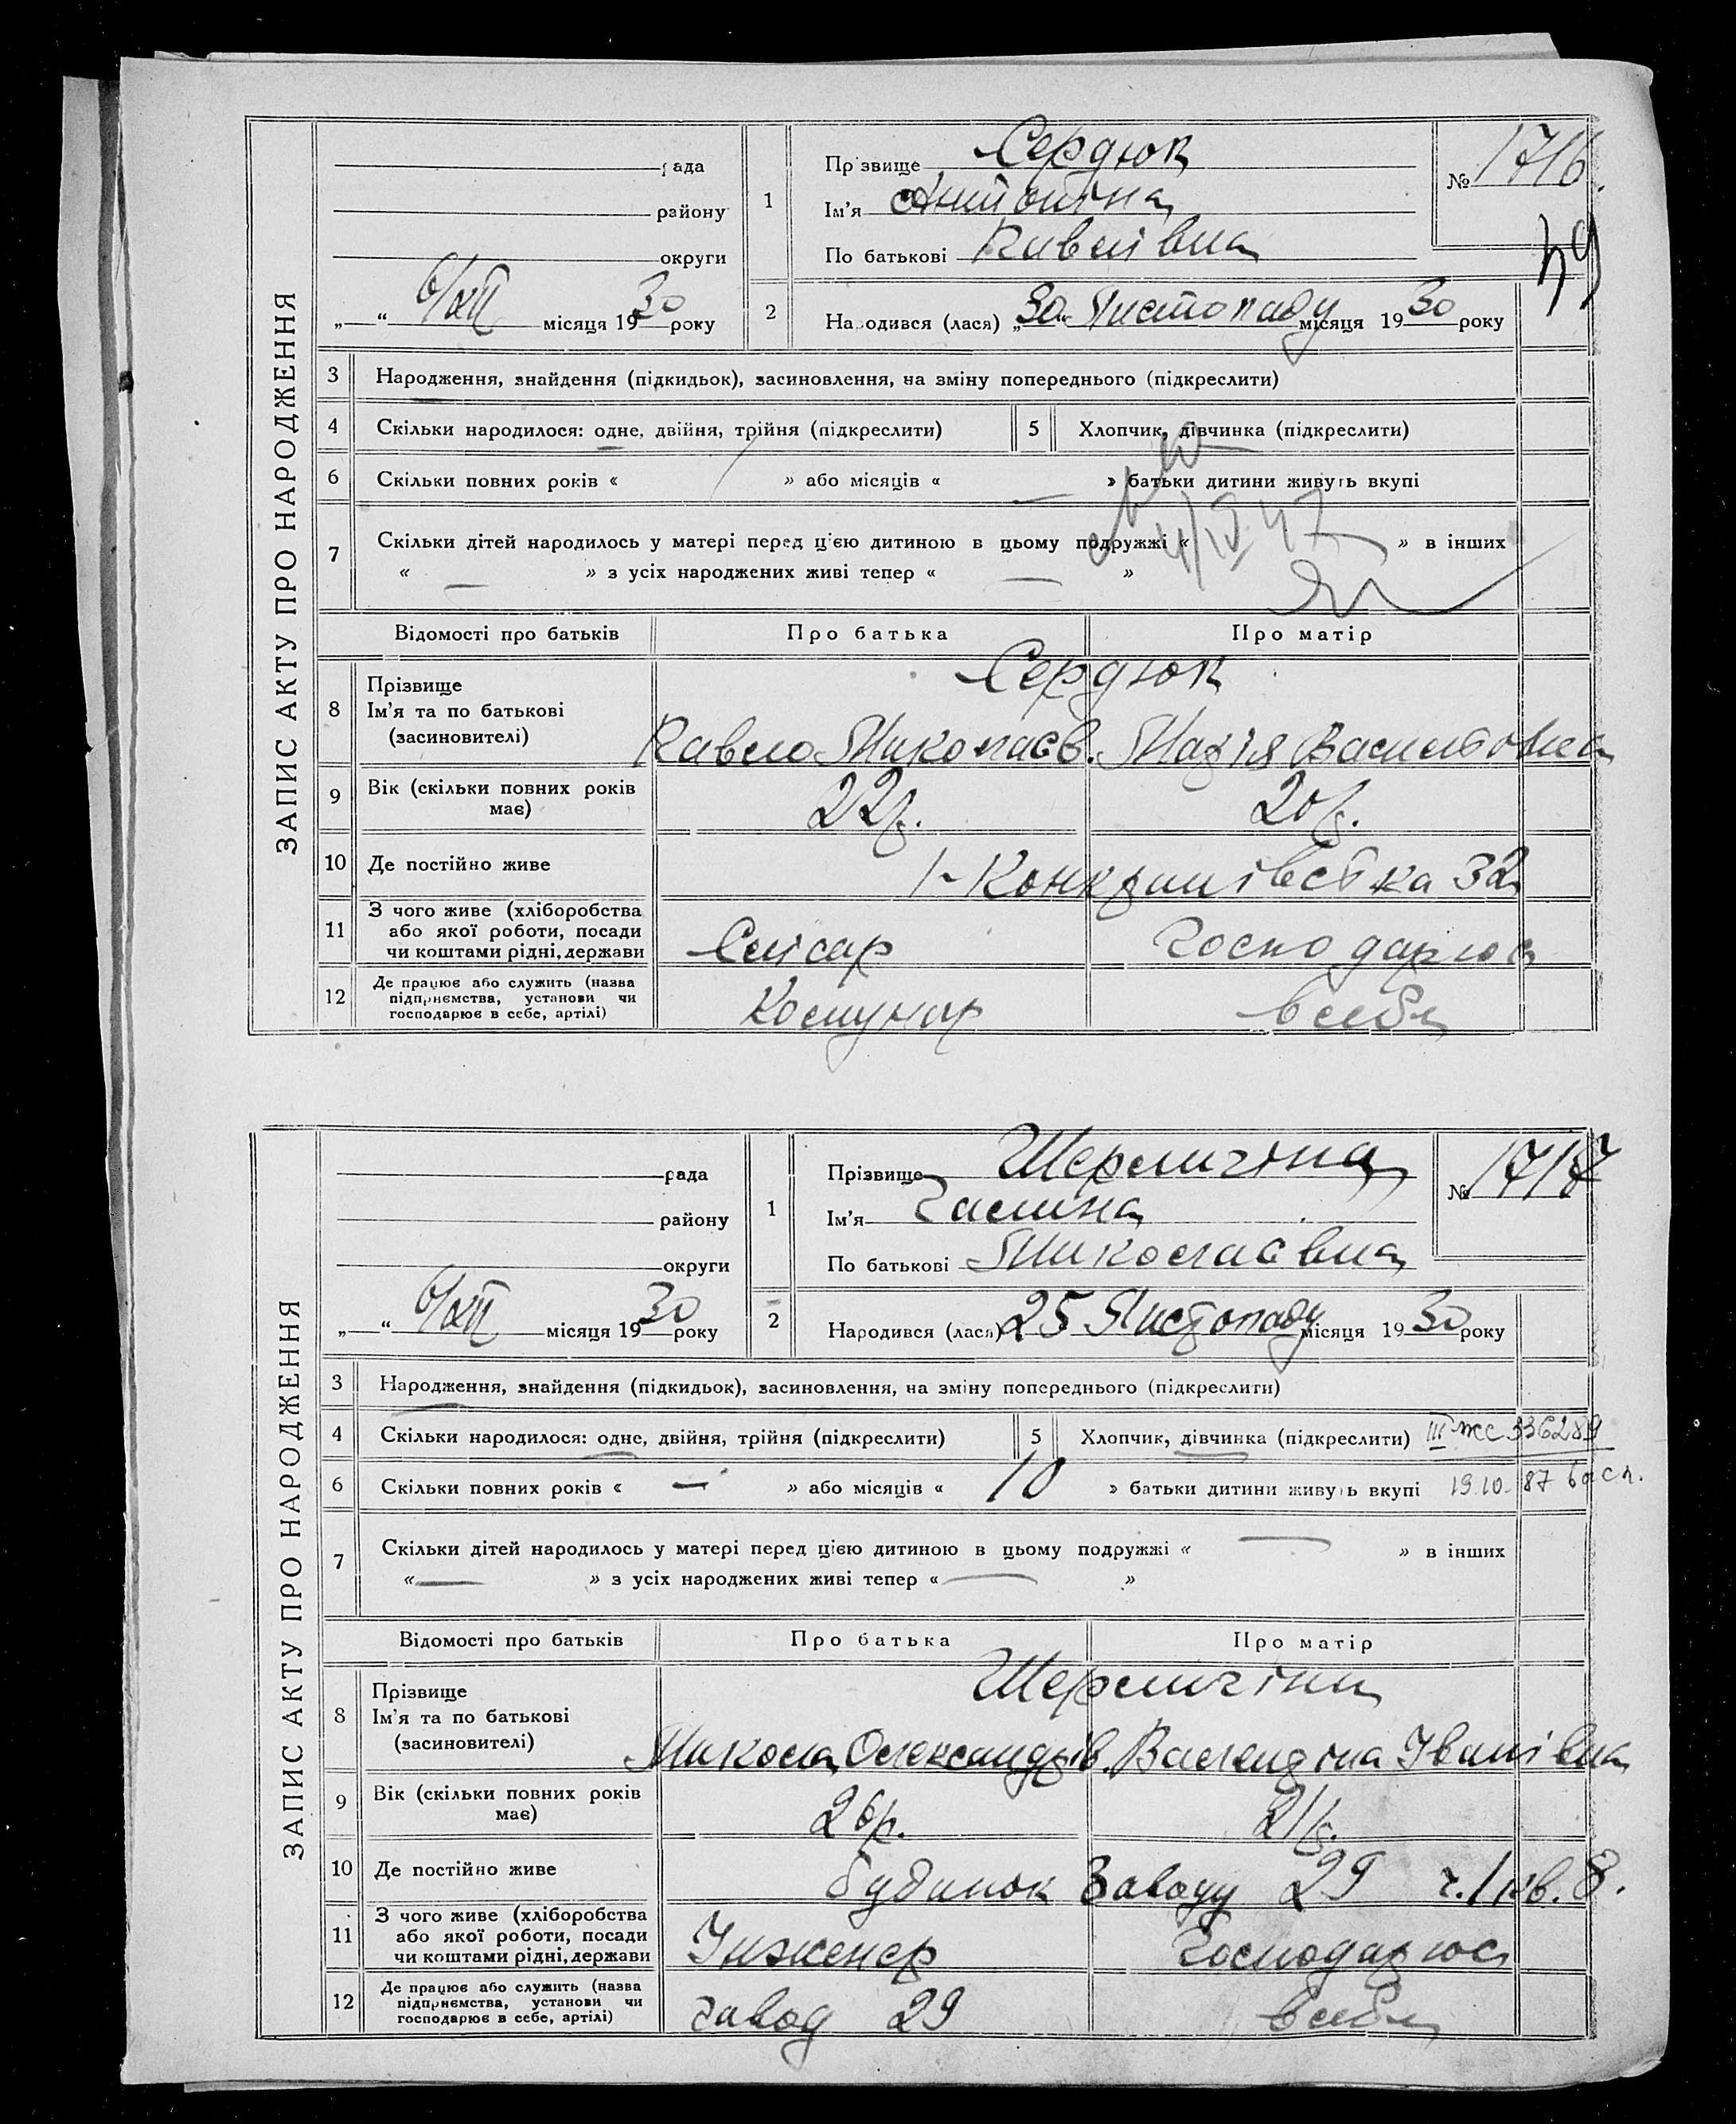 ЗАПИС АКТУ ПРО НАРОДЖЕННЯ
рада
району
округи
„ “ 6/XII місяця 1930 року
1
Прізвище Сердюк
Ім’я Антоніна
По батькові Павлівна
№ 1716.
2
Народився (лася) „30“ Листопаду місяця 1930 року
3 Народження, знайдення (підкидьок), засиновлення, на зміну попереднього (підкреслити)
4 Скільки народилося: одне, двійня, трійня (підкреслити) 5 Хлопчик, дівчинка (підкреслити)
6 Скільки повних років « » або місяців « — » батьки дитини живуть вкупі
7 Скільки дітей народилось у матері перед цією дитиною в цьому подружжі « » в інших
« — » з усіх народжених живі тепер « — »
Відомості про батьків Про батька Про матір
8 Прізвище
Ім’я та по батькові
(засиновителі)
Сердюк
Павло Миколаєв. Марія Васильовна
9 Вік (скільки повних років має) 22р. 20р.
10 Де постійно живе 32
11 З чого живе (хліборобства
або якої роботи, посади
чи коштами рідні, держави
Слісар Господарює
12 Де працює або служить (назва
підприємства, установи чи
господарює в себе, артілі)
Комунар в себе
ЗАПИС АКТУ ПРО НАРОДЖЕННЯ
рада
району
округи
„ “ 6/XII місяця 1930 року
1
Прізвище Шермигіна
Ім’я Галина
По батькові Миколаєвна
№ 1717
2
Народився (лася) 25 Листопаду місяця 1930 року
3 Народження, знайдення (підкидьок), засиновлення, на зміну попереднього (підкреслити)
4 Скільки народилося: одне, двійня, трійня (підкреслити) 5 Хлопчик, дівчинка (підкреслити) III ЖС 336289
6 Скільки повних років « — » або місяців « 10 » батьки дитини живуть вкупі 19.10.87
7 Скільки дітей народилось у матері перед цією дитиною в цьому подружжі « — » в інших
« — » з усіх народжених живі тепер « — »
Відомості про батьків Про батька Про матір
8 Прізвище
Ім’я та по батькові
(засиновителі)
Шермигіни
Микола Олександрів. Валентіна Іванівна
9 Вік (скільки повних років має) 26р. 21р.
10 Де постійно живе будинок Заводу 29 ч. 1 кв. 8.
11 З чого живе (хліборобства
або якої роботи, посади
чи коштами рідні, держави
Інженер Господарює
12 Де працює або служить (назва
підприємства, установи чи
господарює в себе, артілі)
завод 29 в себе